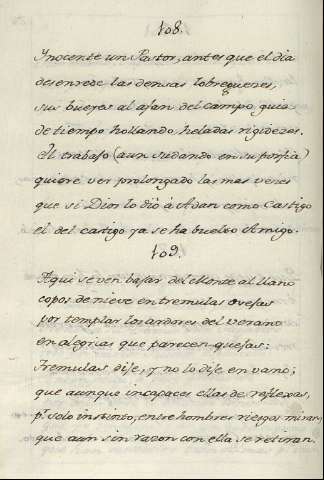 108.
Ynocente un Pastor, antes que el dia
desenrede las densas lobregueces,
sus bueyes al afan del campo guia
de tiempo hollando heladas rigideces.
El trabajo (aun sudando en su porfia)
quiere ver prolongado las mas veces
que si Dios lo dió á Adan como Castigo
el del castigo ya se ha buelto Amigo.
109.
Aqui se ven bajar del Monte al llano
copos de nieve en tremulas ovejas
por templar los ardores del verano
en alegrias que parecen quejas:
Tremulas dije, y no lo dije en vano;
que aunque incapaces ellas de reflexas,
pr. solo instinto, entre hombres riesgos miran,
que aun sin razon con ella se retiran.